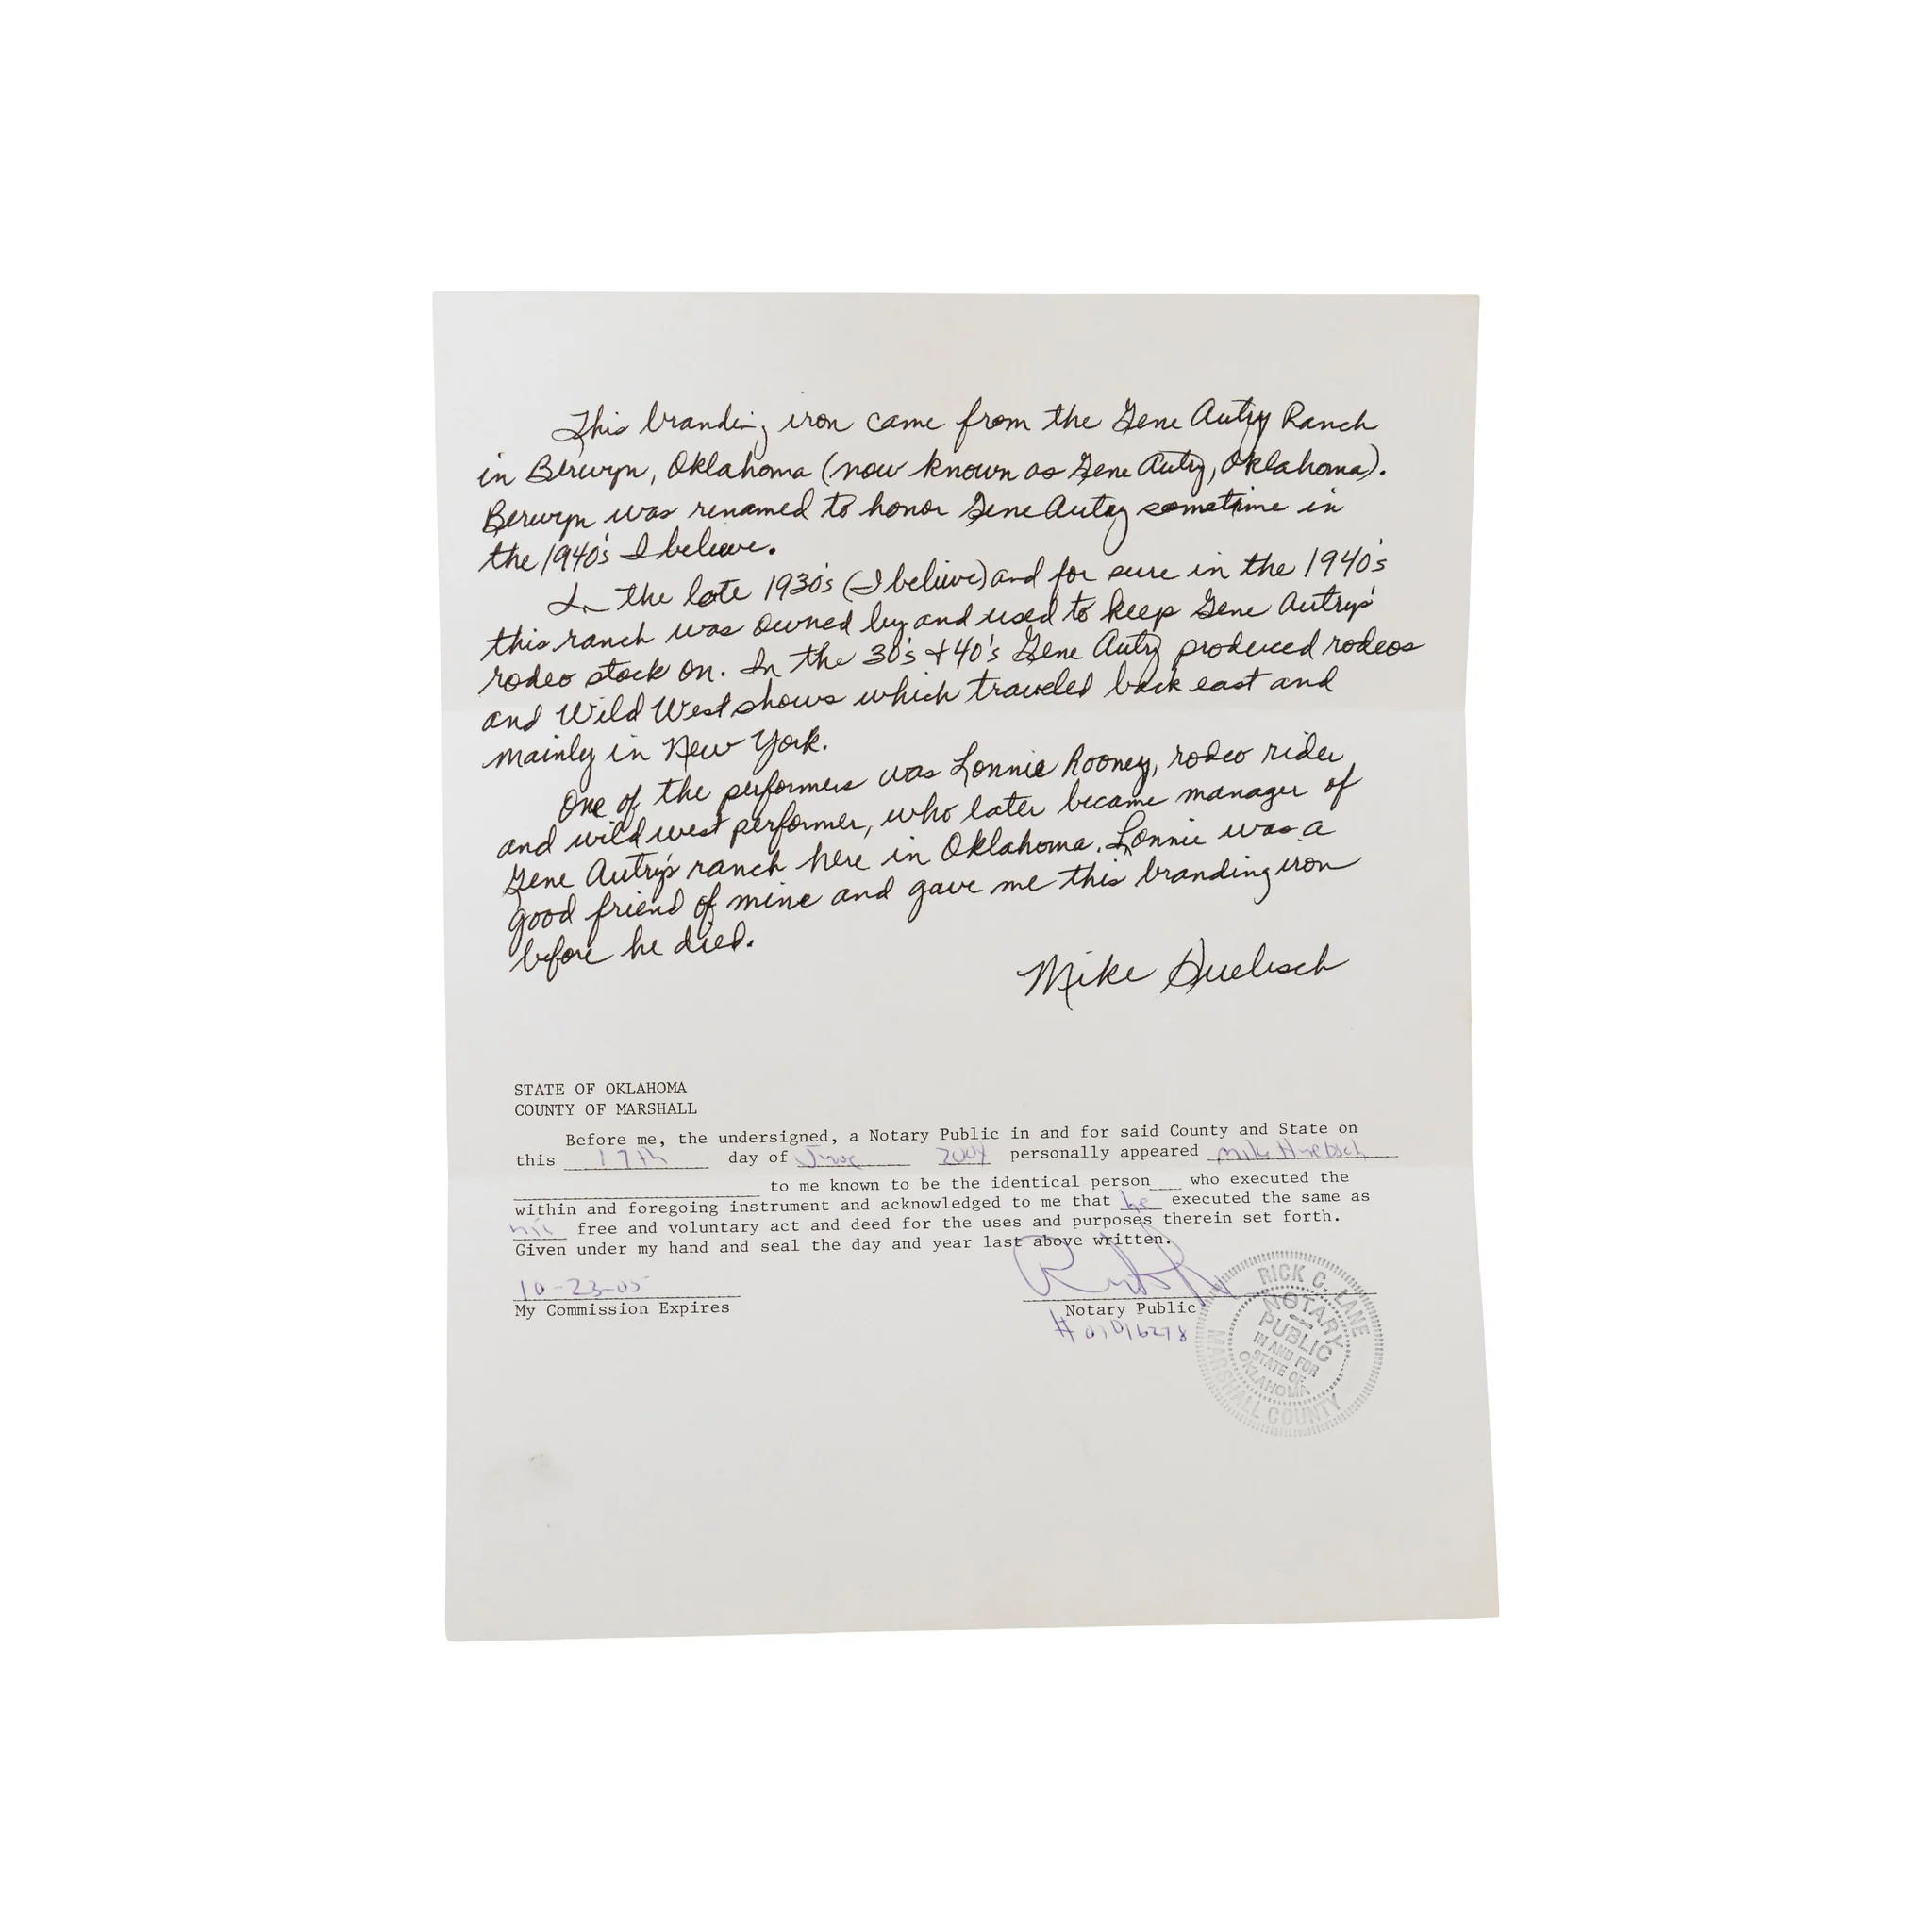 This branding iron came from the Gene Autry Ranch
in Berwyn, Oklahoma (now known as Gene Autry, Oklahoma).
Berwyn was renamed to honor Gene Autry sometime in
the 1940's I believe.
In the late 1930's (I believe) and for sure in the 1940's
this ranch was owned by and used to keep Gene Autrys'
rodeo stock on. In the 30's & 40's Gene Autry produced rodeos
and Wild West shows which traveled back east and
mainly in New York.
One of the performers was Lonnie Rooney, rodeo rider
and wild west performer, who later became manager of
Gene Autry's ranch here in Oklahoma. Lonnie was a
good friend of mine and gave me this branding iron
before he died.
Mike Huebsch
STATE OF OKLAHOMA
COUNTY OF MARSHALL
Before me, the undersigned, a Notary Public in and for said County and State on
this 17th day of June 2004 personally appeared Mike Huebsch
to me known to be the identical person who executed the
within and foregoing instrument and acknowledged to me that he executed the same as
his free and voluntary act and deed for the uses and purposes therein set forth.
Given under my hand and seal the day and year last above written.
10-23-05
My Commission Expires
Notary Public
# 01016278
RICK C. LANE
NOTARY
PUBLIC
IN AND FOR
STATE OF
OKLAHOMA
MARSHALL COUNTY